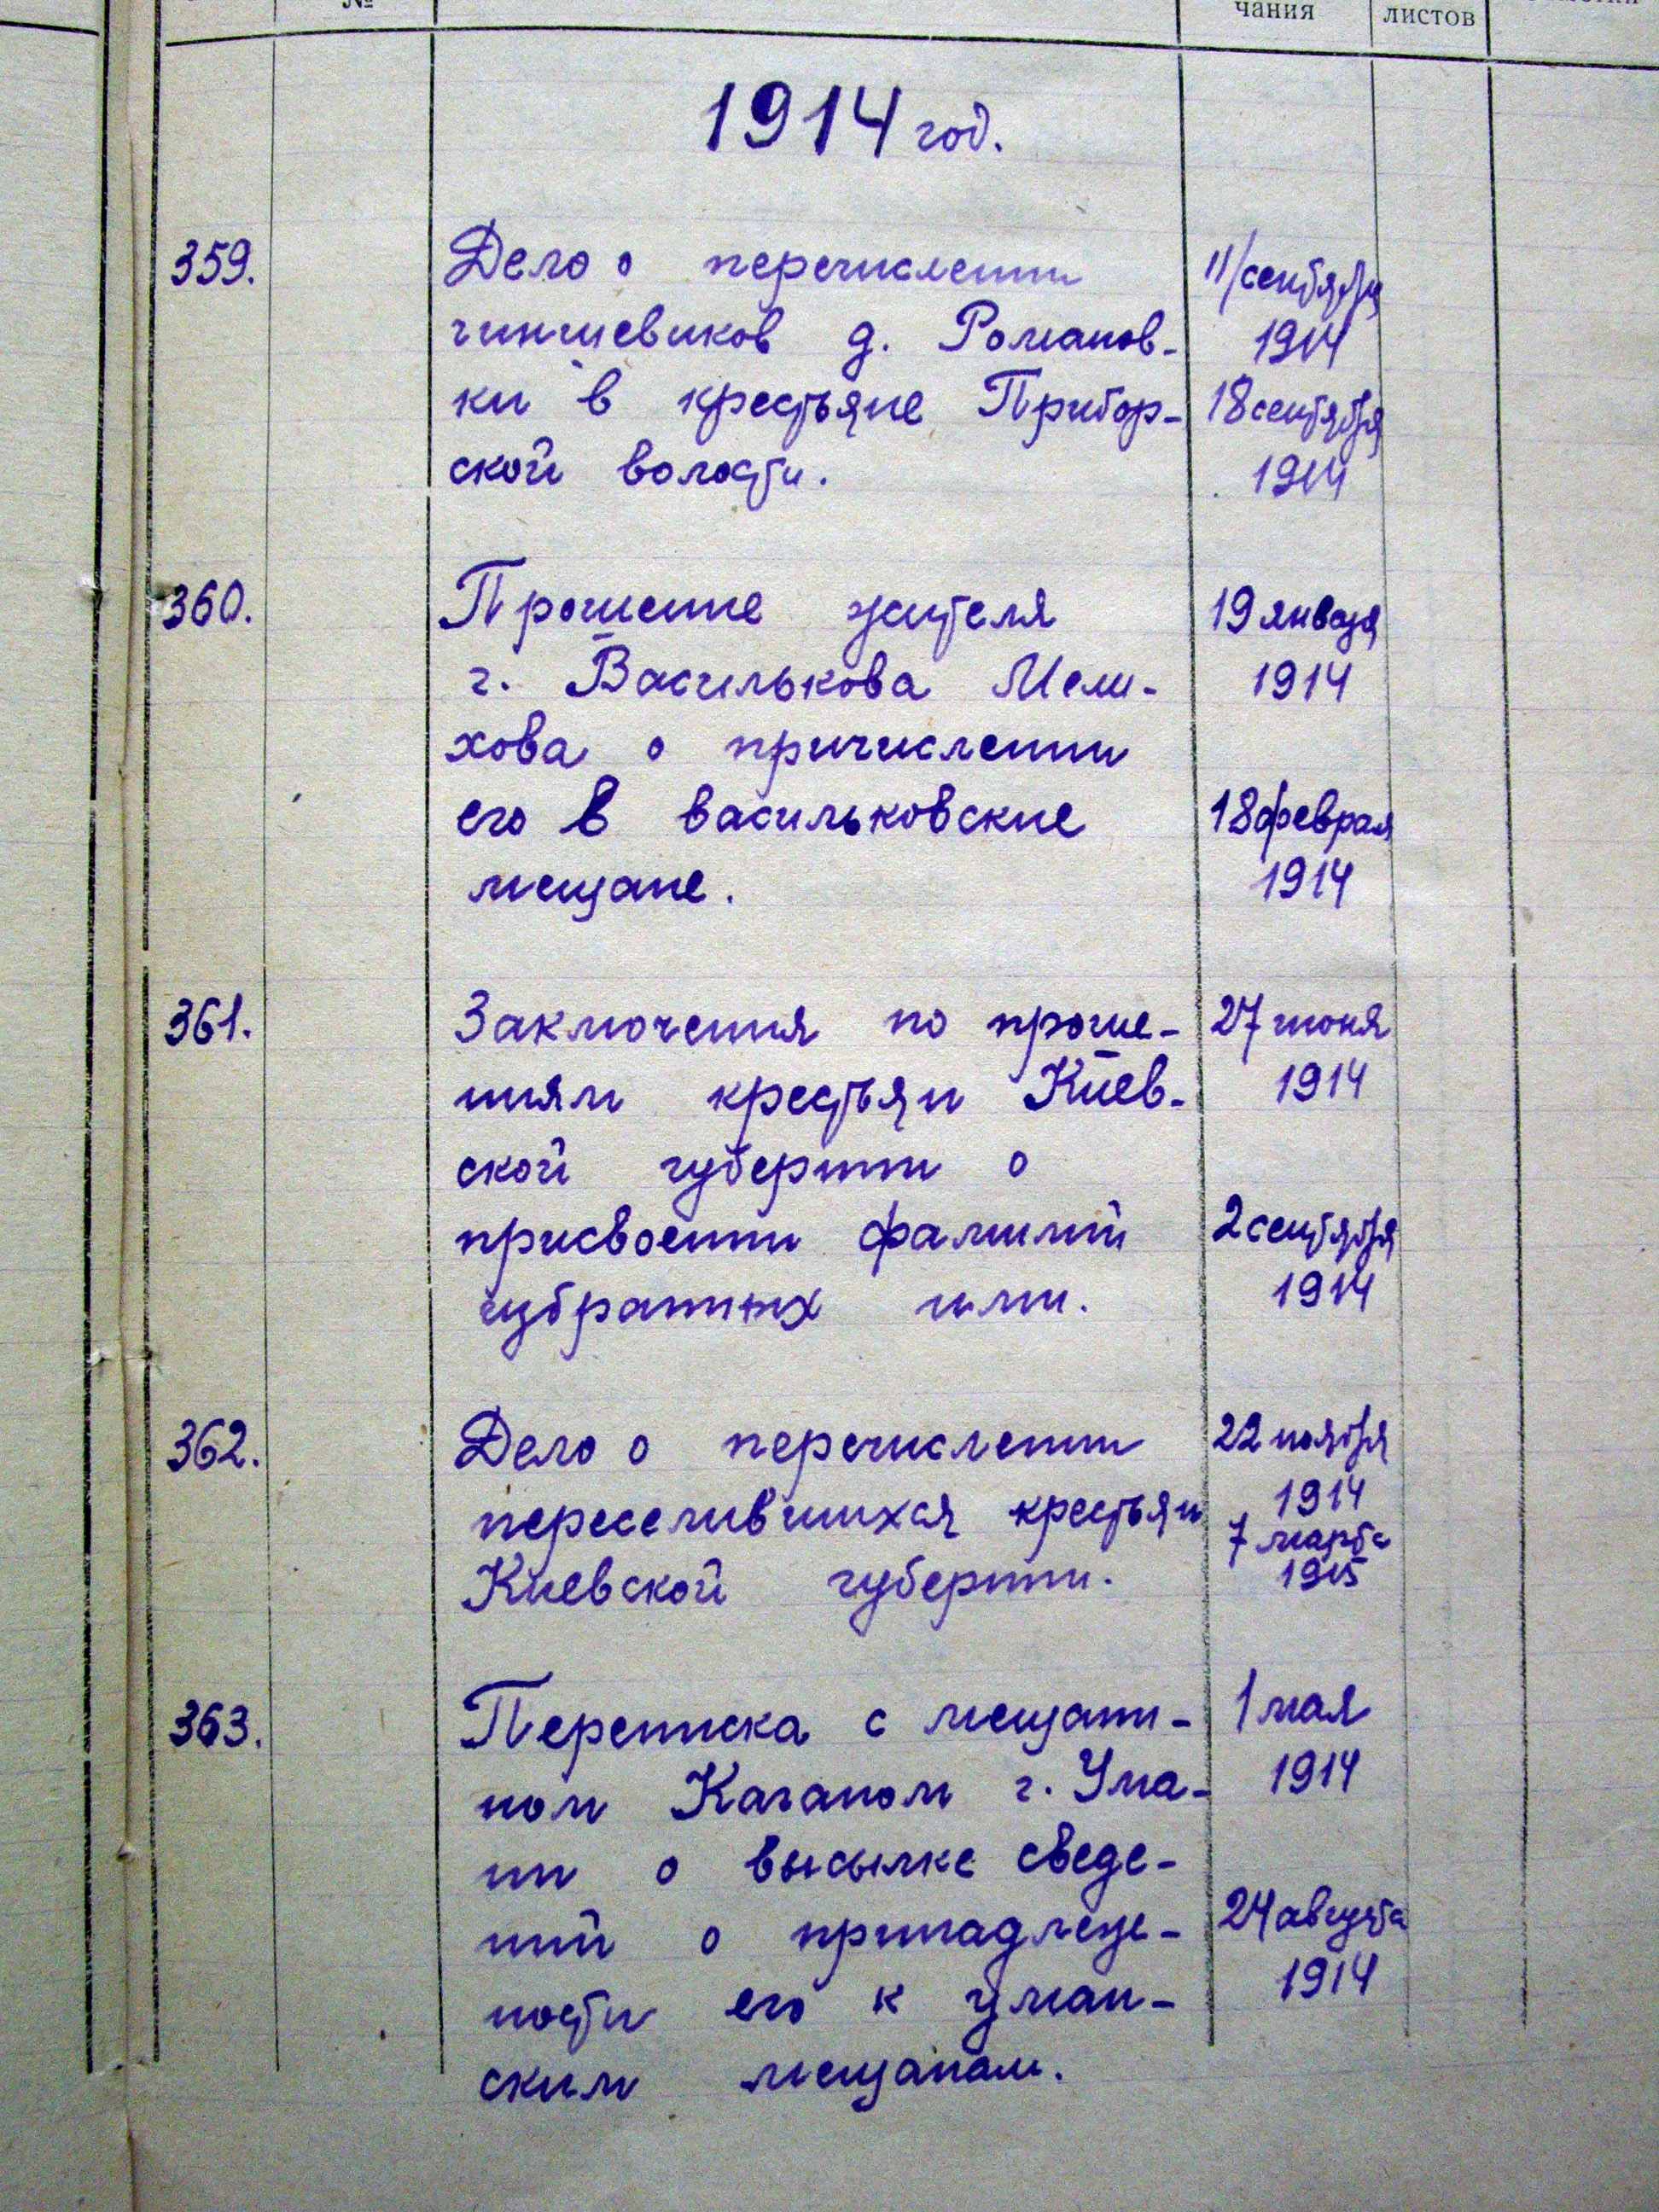 №
чания
листов
1914 год.
359.
Дело о перечислении
чиншевиков д. Романов-
ки в крестьяне Прибор-
ской волости.
11/сентября
1914
18 сентября
1914
360.
Прошение жителя
г. Василькова Мели-
хова о причислении
его в васильковские
мещане.
19 января
1914
18 февраля
1914
361.
Заключения по проше-
ниям крестьян Киев-
ской губернии о
присвоении фамилий
избранных ими.
27 июня
1914
2 сентября
1914
362.
Дело о перечислении
переселившихся крестьян
Киевской губернии.
22 ноября
1914
7 марта
1915
363.
Переписка с мещани-
ном Каганом г. Ума-
ни о высылке сведе-
ний о принадлеж-
ности его к уман-
ским мещанам.
1 мая
1914
24 августа
1914